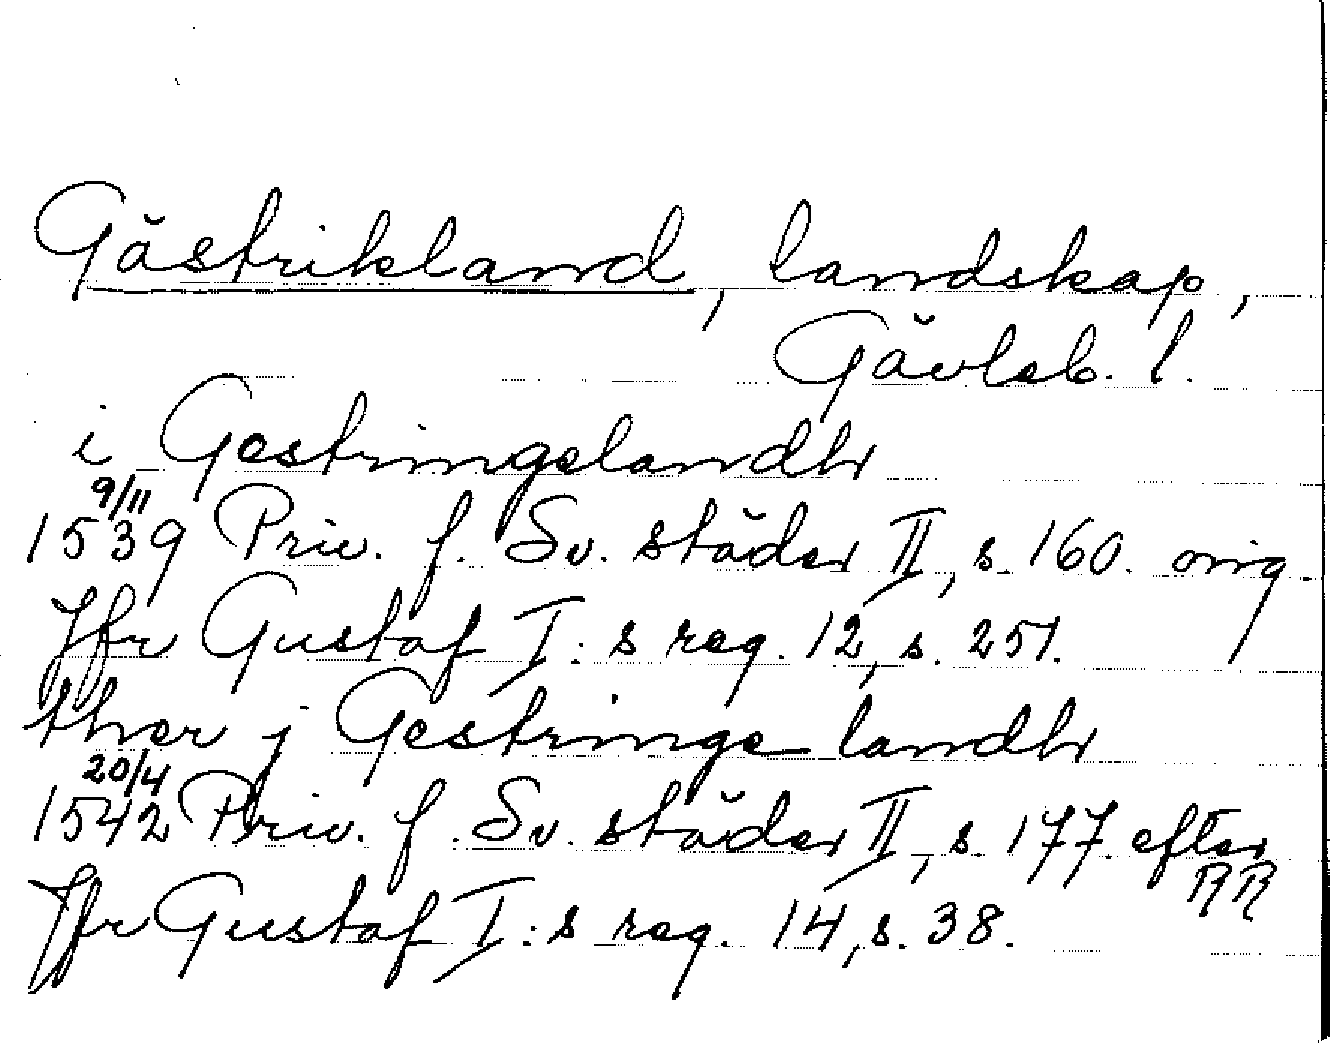 Gästrikland, landskap,
Gävleb. l.
i Gestringelandh
9/11
1539 Priv. f. Sv. städer II, s. 160. orig.
Jfr Gustaf I:s reg. 12, s. 251.
ther j Gestringe landh
20/4
1542 Priv. f. Sv. städer II, s. 177. efter
RR
Jfr Gustaf I:s reg. 14, s. 38.